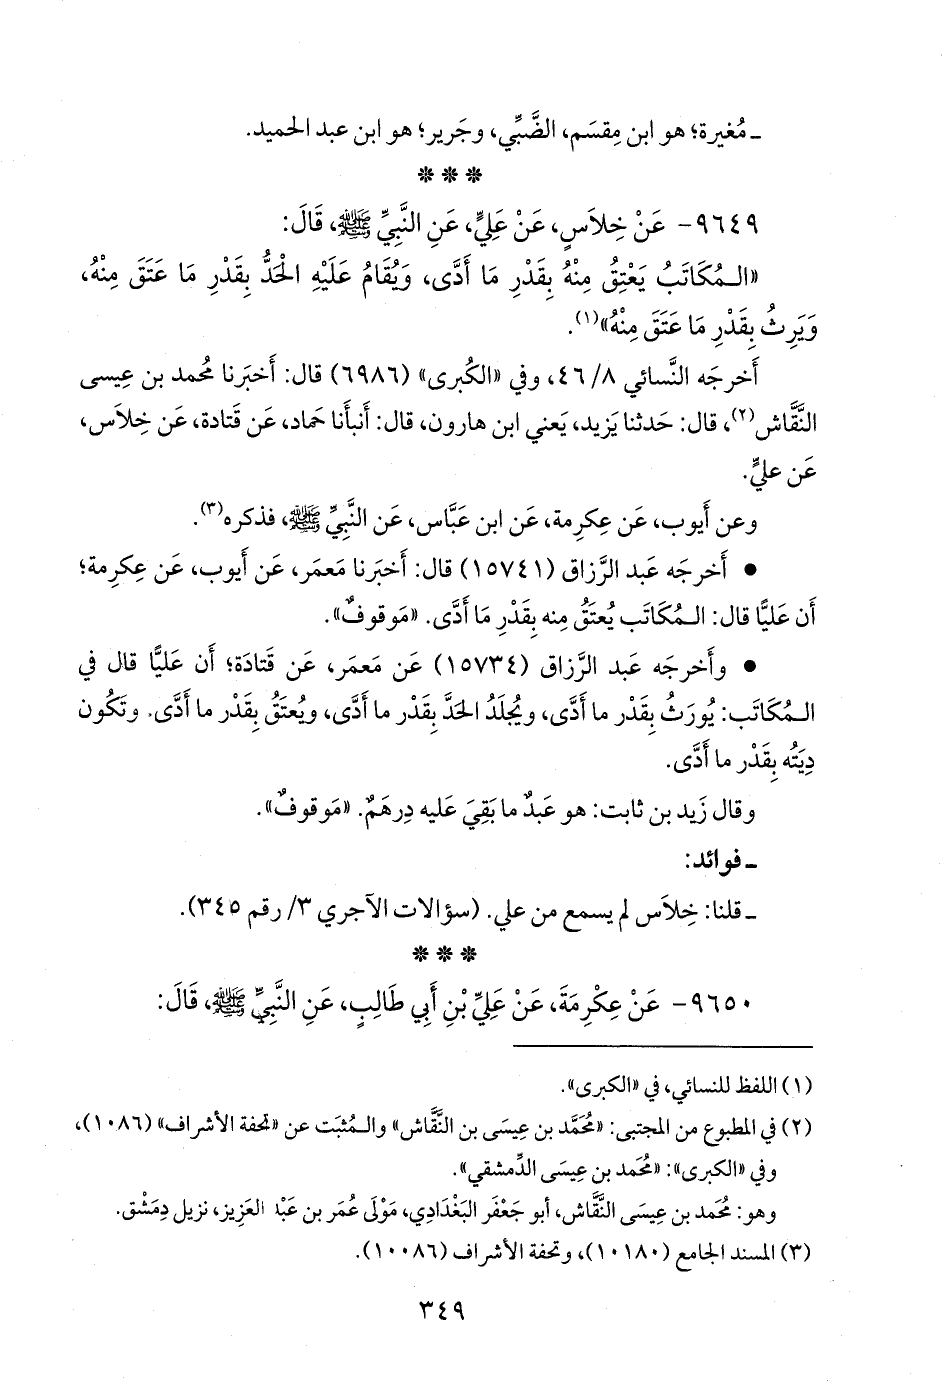 ـ مُغيرة؛ هو ابن مِقسَم، الضَّبِّي، وجَرير؛ هو ابن عبد الحميد.
* * *
٩٦٤٩- عَنْ خِلاَسٍ، عَنْ عَلِيٍّ، عَنِ النَّبِيِّ ﷺ، قَالَ:
«الـمُكَاتَبُ يَعْتِقُ مِنْهُ بِقَدْرِ مَا أَدَّى، وَيُقَامُ عَلَيْهِ الْحَدُّ بِقَدْرِ مَا عَتَقَ مِنْهُ،
وَيَرِثُ بِقَدْرِ مَا عَتَقَ مِنْهُ»(١).
أَخرجَه النَّسائي ٨/ ٤٦، وفي «الكُبرى» (٦٩٨٦) قال: أَخبَرنا مُحمد بن عِيسى
النَّقَّاش(٢)، قال: حَدثنا يَزيد، يَعني ابن هارون، قال: أَنبأَنا حَماد، عَن قَتادة، عَن خِلاَس،
عَن عليٍّ.
وعن أَيوب، عَن عِكرِمة، عَن ابن عَبَّاس، عَن النَّبِيِّ ﷺ، فذكره(٣).
● أَخرجَه عَبد الرَّزاق (١٥٧٤١) قال: أَخبَرنا مَعمَر، عَن أَيوب، عَن عِكرمة؛
أَن عَليًّا قال: الـمُكَاتَب يُعتَقُ منه بِقَدْرِ مَا أَدَّى. «مَوقوفٌ».
● وأَخرجَه عَبد الرَّزاق (١٥٧٣٤) عَن مَعمَر، عَن قَتادَة؛ أَن عَليًّا قال في
الـمُكَاتَب: يُورَثُ بِقَدْر ما أَدَّى، ويُجلَدُ الحَدَّ بِقَدْر ما أَدَّى، ويُعتَقُ بِقَدْر ما أَدَّى. وتَكُون
دِيَتُه بِقَدْر ما أَدَّى.
وقال زَيد بن ثابت: هو عَبدٌ ما بَقِيَ عَليه دِرهَمٌ. «مَوقوفٌ».
ـ فوائد:
ـ قلنا: خِلاَس لم يسمع من علي. (سؤالات الآجري ٣/ رقم ٣٤٥).
* * *
٩٦٥٠- عَنْ عِكْرِمَةَ، عَنْ عَلِيِّ بْنِ أَبِي طَالِبٍ، عَنِ النَّبِيِّ ﷺ، قَالَ:
(١) اللفظ للنسائي، في «الكبرى».
(٢) في المطبوع من المجتبى: «مُحَمَّد بن عِيسَى بن النَّقَّاش» والـمُثبَت عن «تحفة الأشراف» (١٠٨٦)،
وفي «الكبرى»: «مُحَمد بن عِيسَى الدِّمشقي».
وهو: مُحَمد بن عِيسَى النَّقَّاش، أبو جَعْفَر البَغْدَادِي، مَوْلَى عُمَر بن عَبْد العَزِيز، نزيل دِمَشْق.
(٣) المسند الجامع (١٠١٨٠)، وتحفة الأشراف (١٠٠٨٦).
٣٤٩